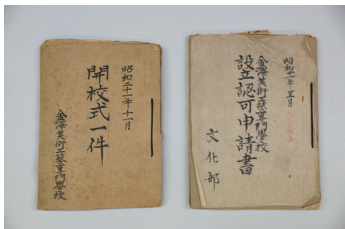 昭和二十一年十一月
開校式一件
金澤美術工藝專門學校
昭和二一年五月
金澤美術工藝專門學校
設立認可申請書
文化部